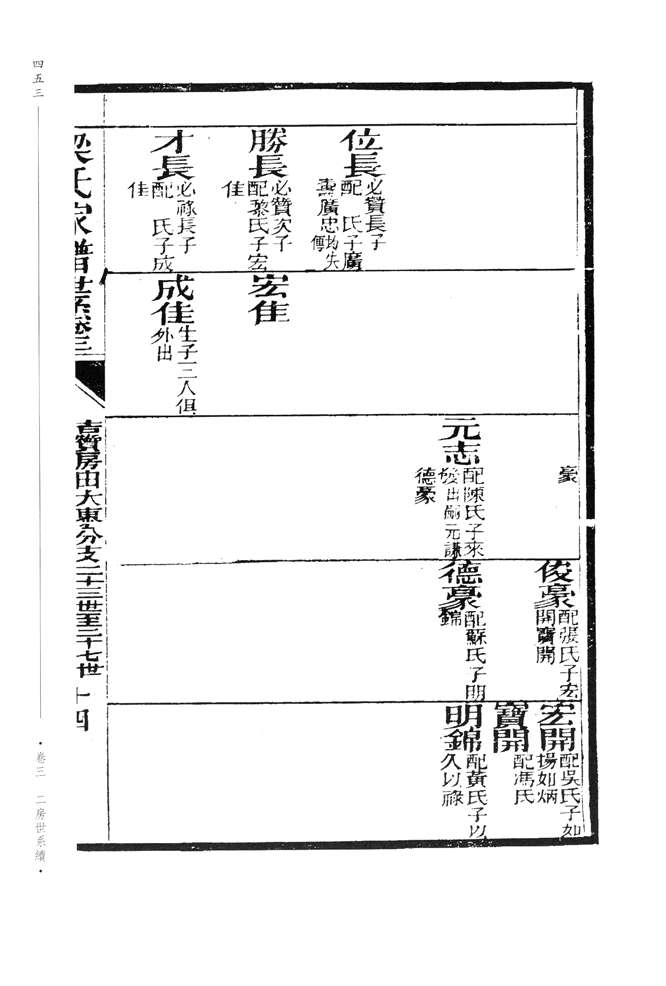 位長
必贊長子
配　氏子廣
壽廣忠均失
傳
勝長
必贊次子
配黎氏子宏
佳
才長
必祿長子
配　氏子成
佳
宏佳
成佳
生子二人俱
外出
豪
元志
配陳氏子來
發出嗣元謙
德豪
俊豪
配張氏子宏
開寶開
德豪
配蘇氏子明
錦
宏開
配吳氏子如
揚如炳
寶開
配馮氏
明錦
配黃氏子以
久以祿
梁氏家譜世系卷三
吉寶房由大東分支二十三世至二十七世
十四
四五三
·卷三　二房世系續·